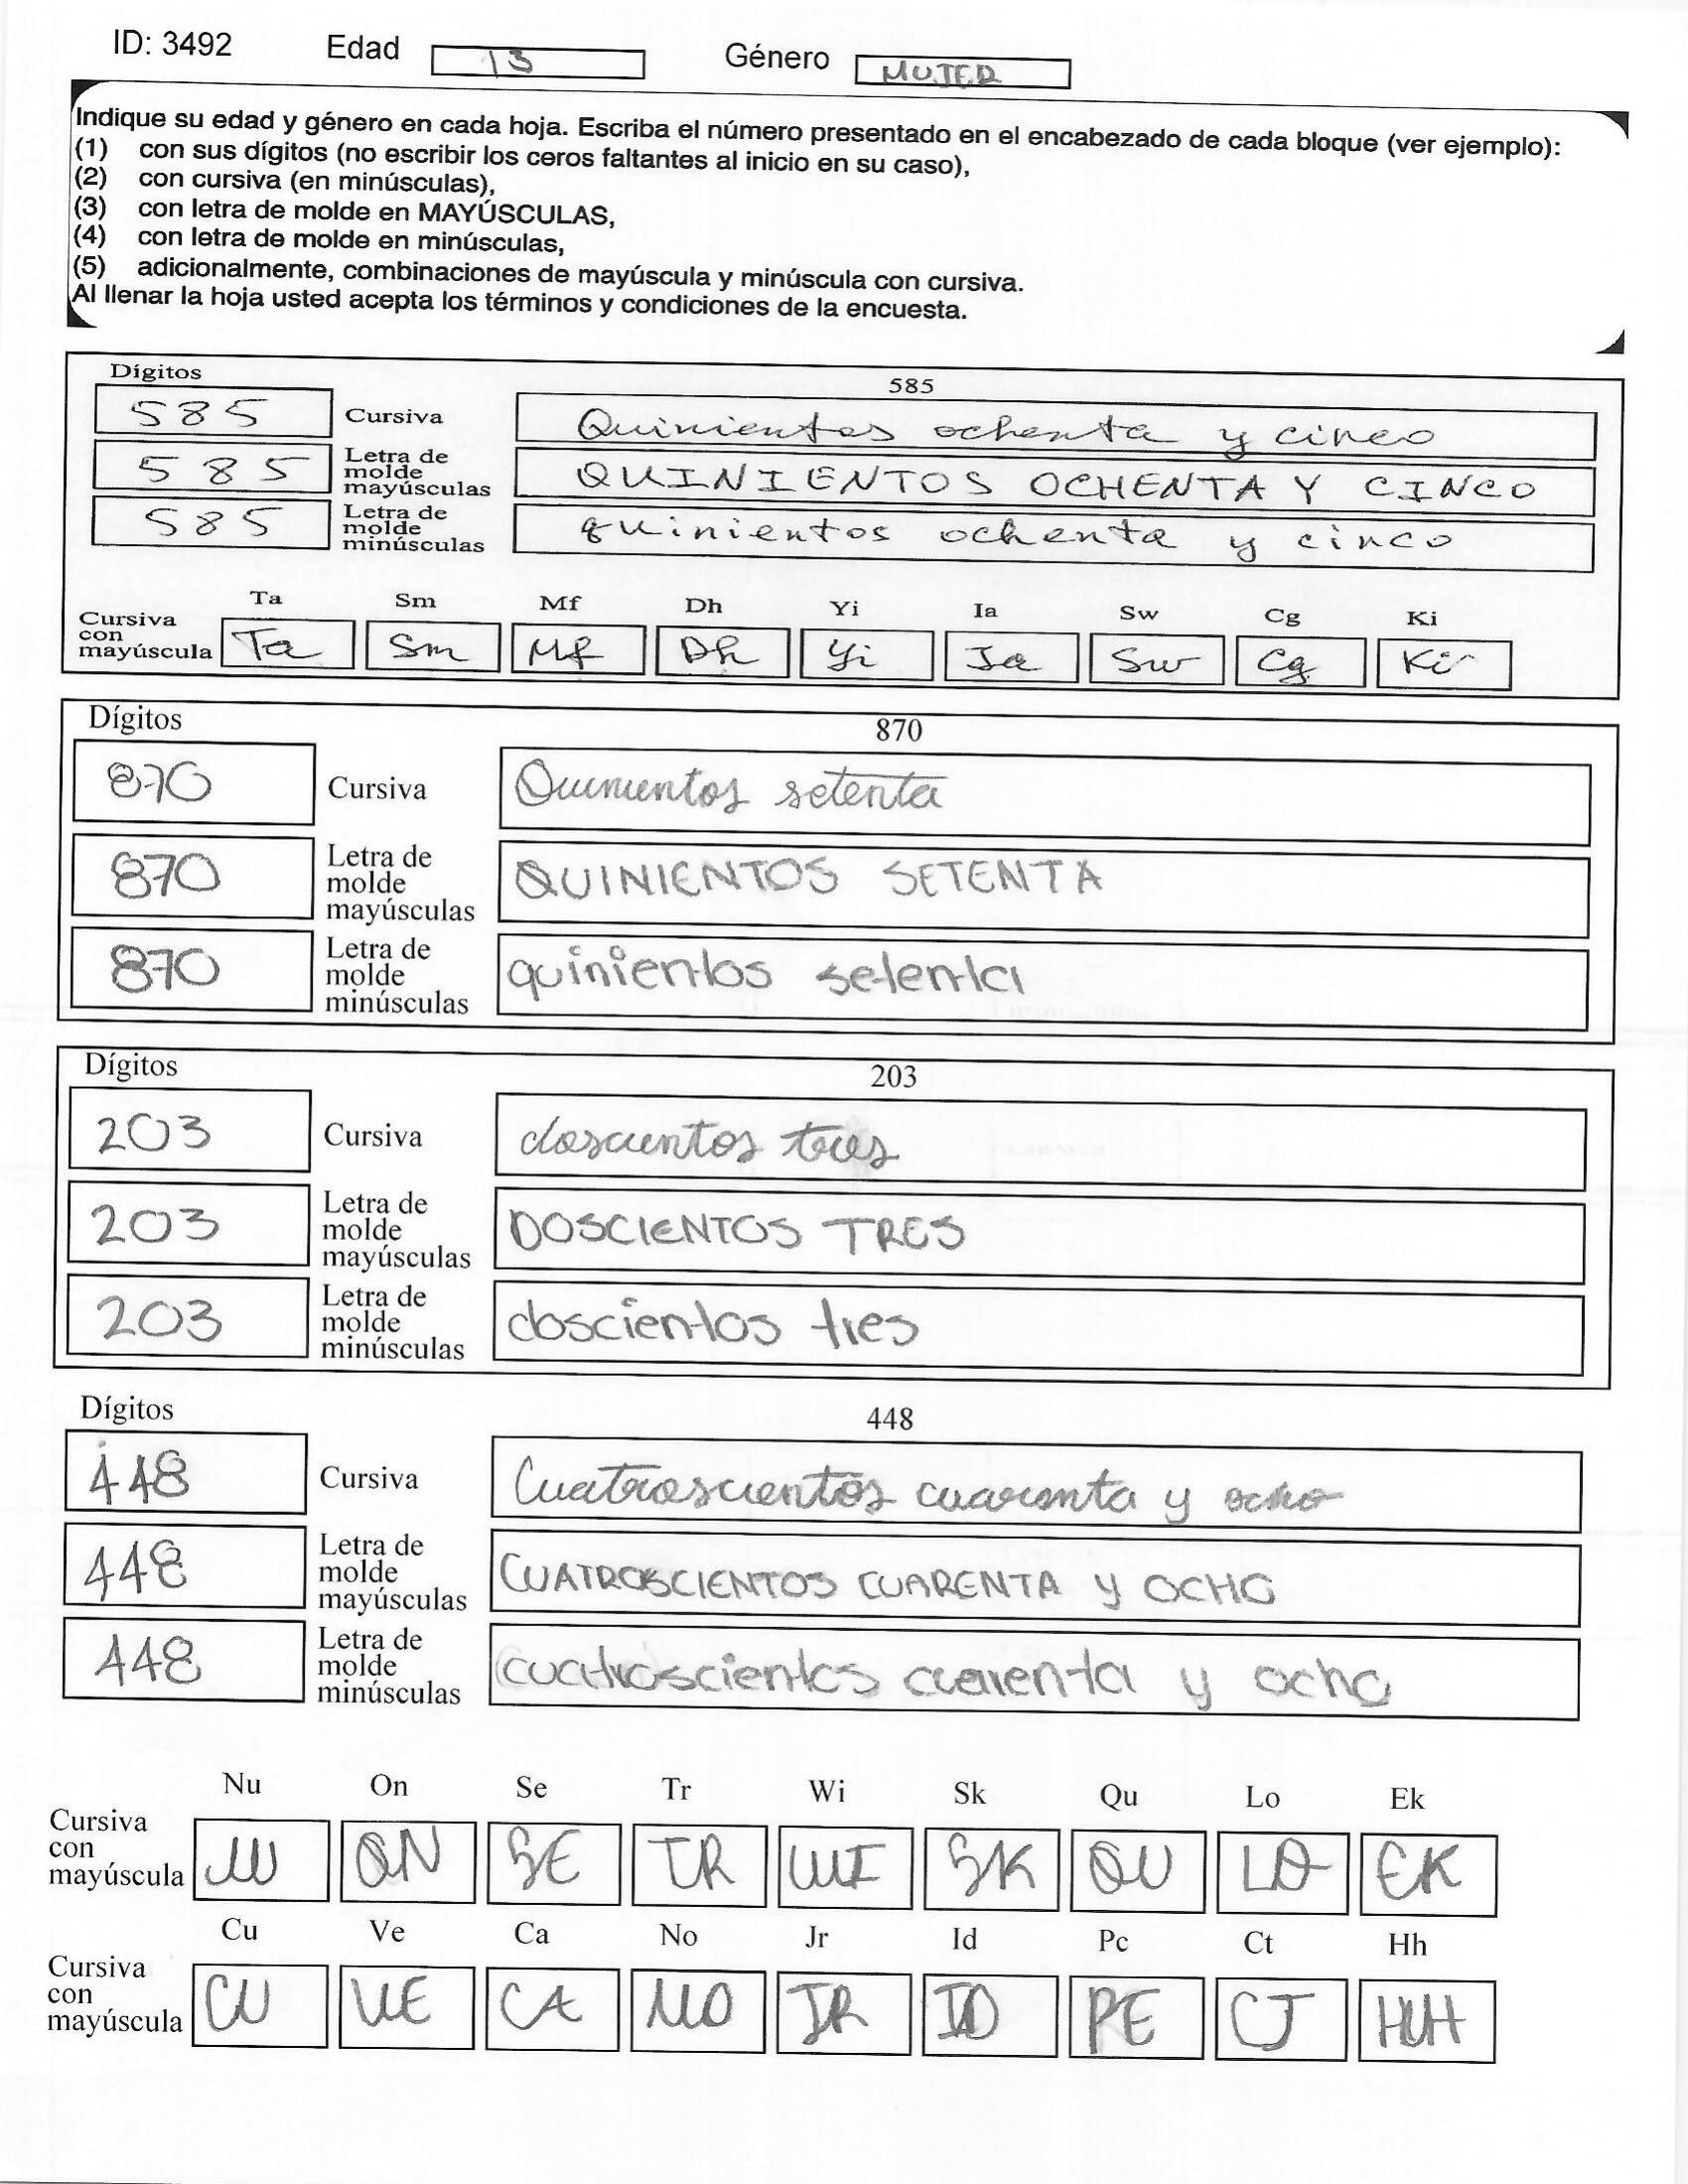 ID: 3492 Edad 13 Género MUJER
Indique su edad y género en cada hoja. Escriba el número presentado en el encabezado de cada bloque (ver ejemplo):
(1) con sus dígitos (no escribir los ceros faltantes al inicio en su caso),
(2) con cursiva (en minúsculas),
(3) con letra de molde en MAYÚSCULAS,
(4) con letra de molde en minúsculas,
(5) adicionalmente, combinaciones de mayúscula y minúscula con cursiva.
Al llenar la hoja usted acepta los términos y condiciones de la encuesta.
Dígitos 585
585 Cursiva Quinientos ochenta y cinco
585 Letra de molde mayúsculas QUINIENTOS OCHENTA Y CINCO
585 Letra de molde minúsculas quinientos ochenta y cinco
Ta Sm Mf Dh Yi Ia Sw Cg Ki
Cursiva con mayúscula Ta Sm Mf Dh Yi Ia Sw Cg Ki
Dígitos 870
870 Cursiva Quinientos setenta
870 Letra de molde mayúsculas QUINIENTOS SETENTA
870 Letra de molde minúsculas quinientos setenta
Dígitos 203
203 Cursiva doscientos tres
203 Letra de molde mayúsculas DOSCIENTOS TRES
203 Letra de molde minúsculas doscientos tres
Dígitos 448
448 Cursiva Cuatroscientos cuarenta y ocho
448 Letra de molde mayúsculas CUATROSCIENTOS CUARENTA y OCHO
448 Letra de molde minúsculas cuatroscientos cuarenta y ocho
Nu On Se Tr Wi Sk Qu Lo Ek
Cursiva con mayúscula NU ON SE TR WI SK QU LO EK
Cu Ve Ca No Jr Id Pc Ct Hh
Cursiva con mayúscula CU VE CA NO JR ID PE CJ HH